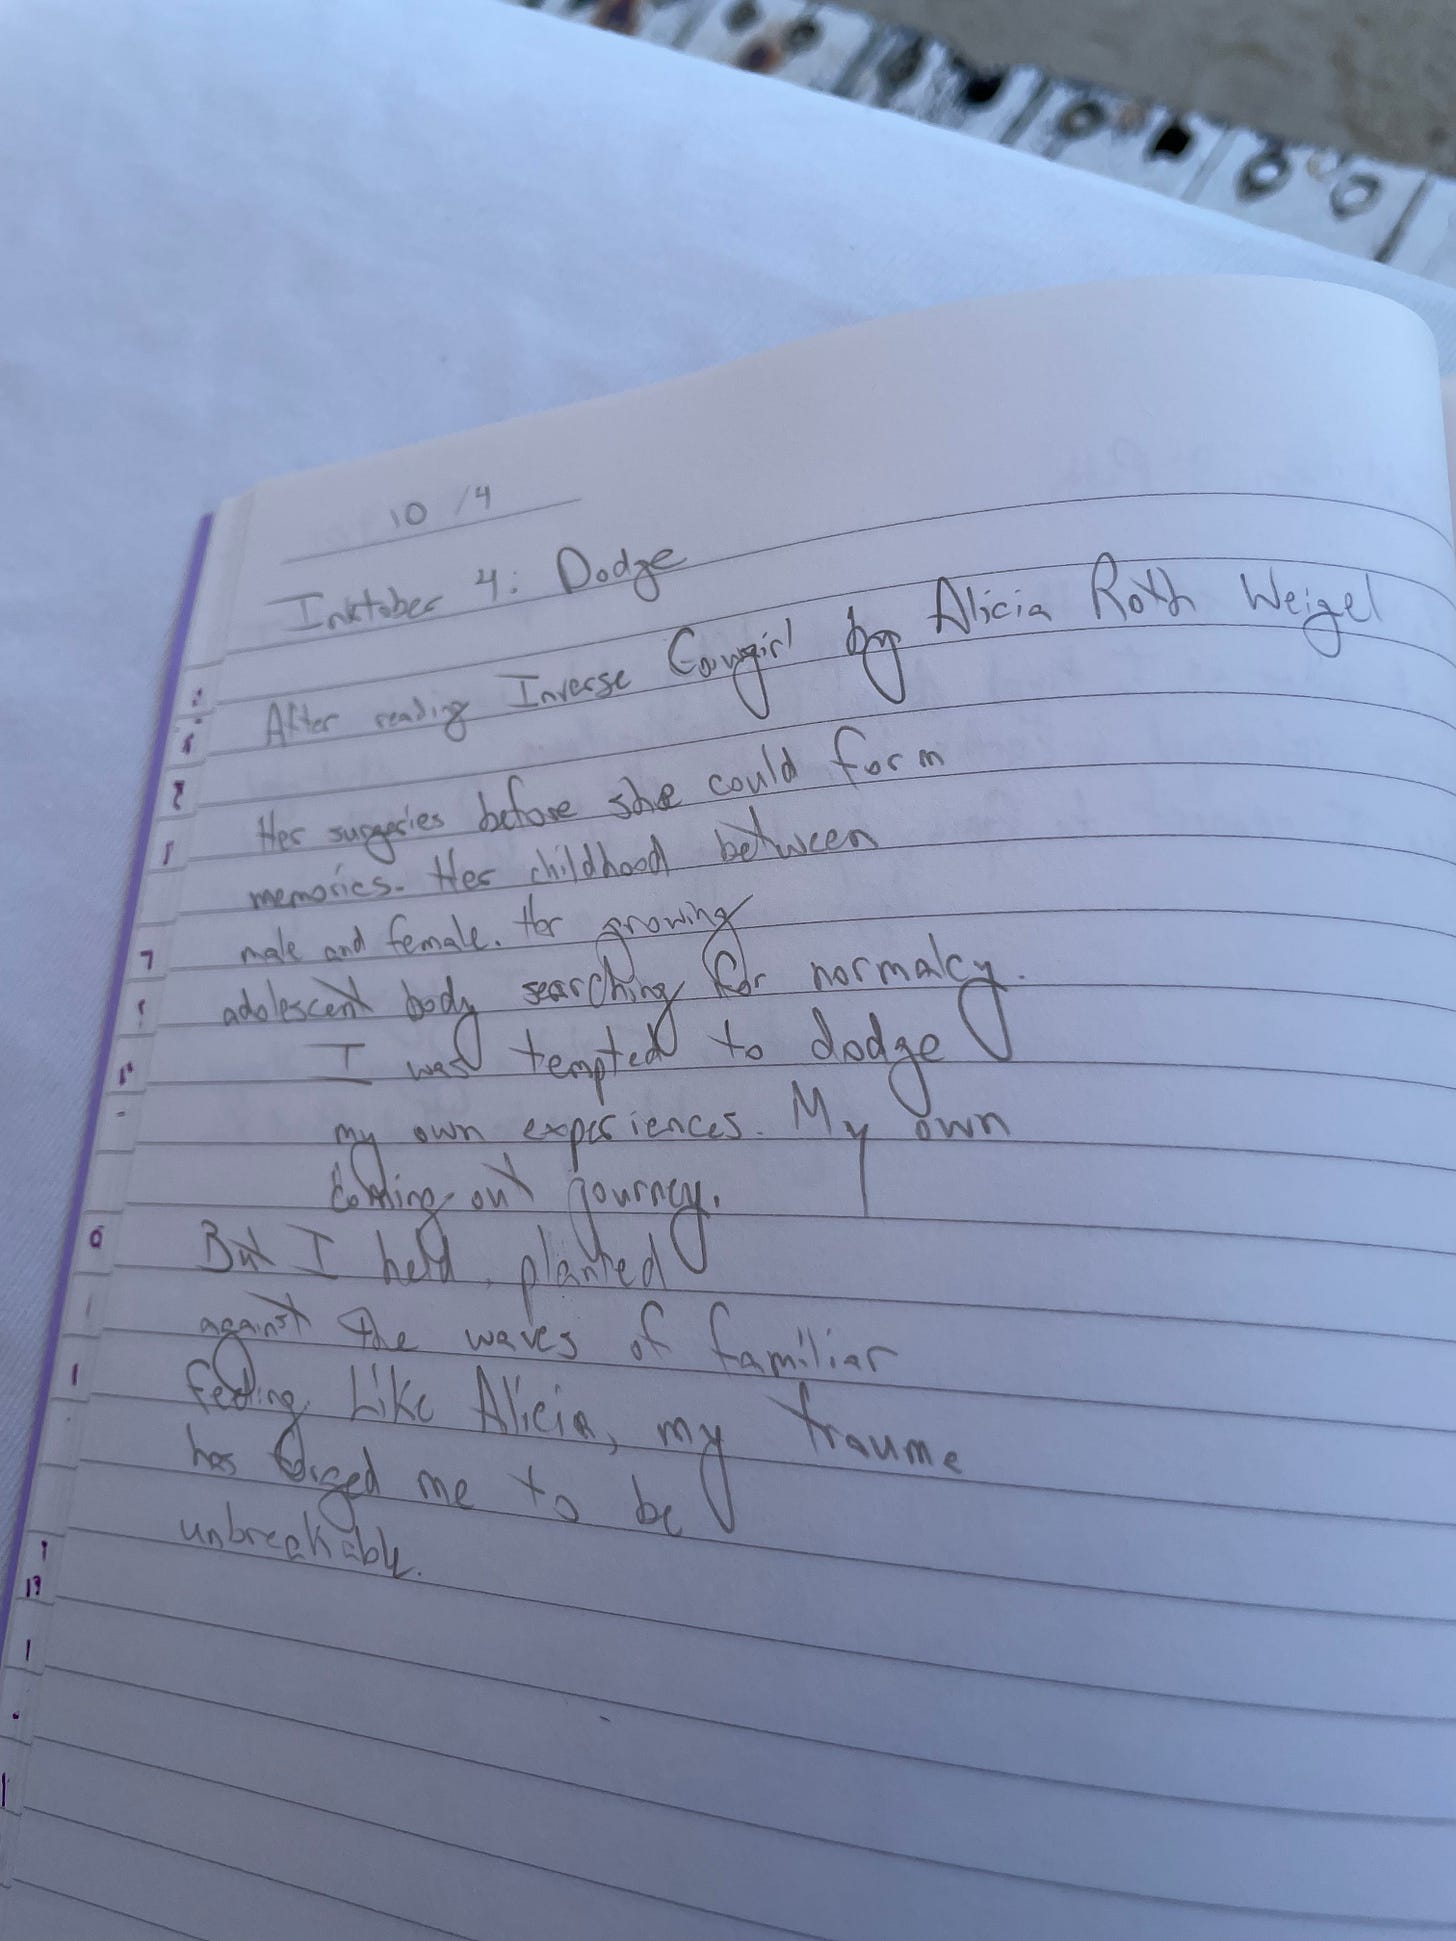 10 /4
Inktober 4: Dodge
After reading Inverse Cowgirl by Alicia Roth Weigel
Her surgeries before she could form
memories. Her childhood between
male and female. Her growing
adolescent body searching for normalcy.
I was tempted to dodge
my own experiences. My own
coming out journey.
But I held, planted
against the waves of familiar
feeling. Like Alicia, my traume
has forged me to be
unbreakable.